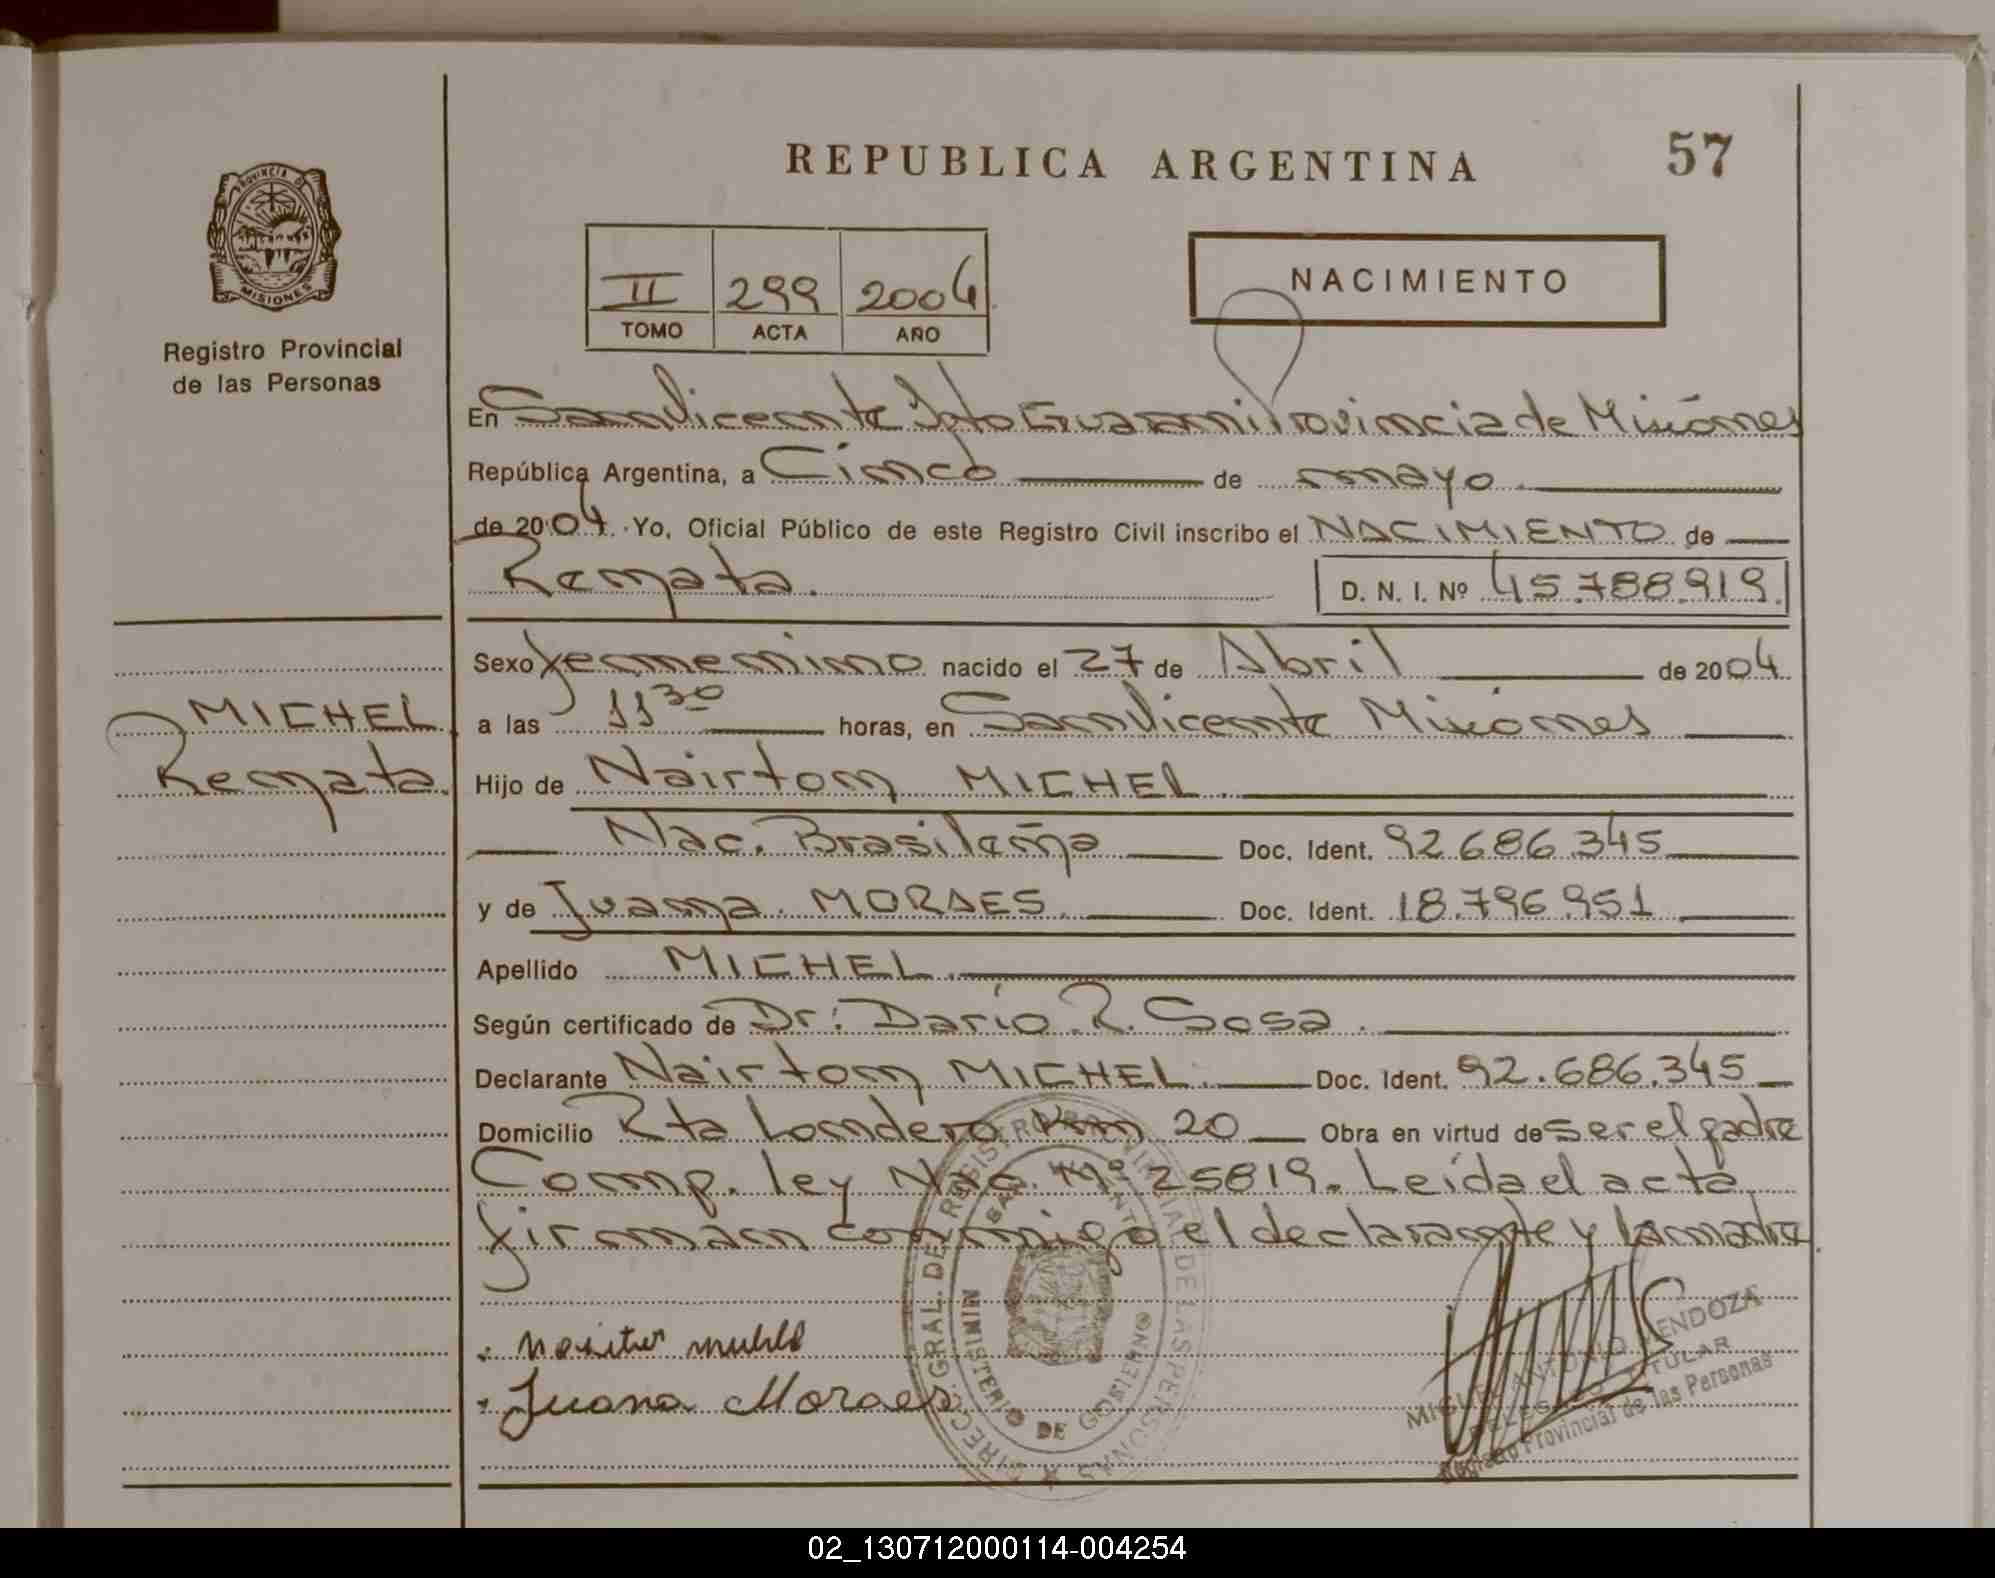 REPUBLICA ARGENTINA
57
PROVINCIA DE
MISIONES
Registro Provincial
de las Personas
II 299 2004
TOMO ACTA AÑO
NACIMIENTO
En San Vicente Dpto Guarani Provincia de Misiones
República Argentina, a Cinco de mayo
de 2004. Yo, Oficial Público de este Registro Civil inscribo el NACIMIENTO de
Renata. D. N. I. Nº 45.788.919.
Sexo femenino nacido el 27 de Abril de 2004
a las 11 30 horas, en San Vicente Misiones
MICHEL
Renata.
Hijo de Nairton MICHEL.
Nac. Brasileña Doc. Ident. 92.686.345
y de Juana MORAES Doc. Ident. 18.796.951
Apellido MICHEL.
Según certificado de Dr. Darío R. Sosa.
Declarante Nairton MICHEL Doc. Ident. 92.686.345
Domicilio Rta Londero Km 20 Obra en virtud de ser el padre
Comp. ley Nac. Nº 25819. Leída el acta
firman conmigo el declarante y la madre.
Juana Moraes
DIRECC. GRAL. DEL REGISTRO PROVINCIAL DE LAS PERSONAS
MINISTERIO DE GOBIERNO
MIGUEL ANTONIO MENDOZA
DELEGADO TITULAR
Registro Provincial de las Personas
02_130712000114-004254